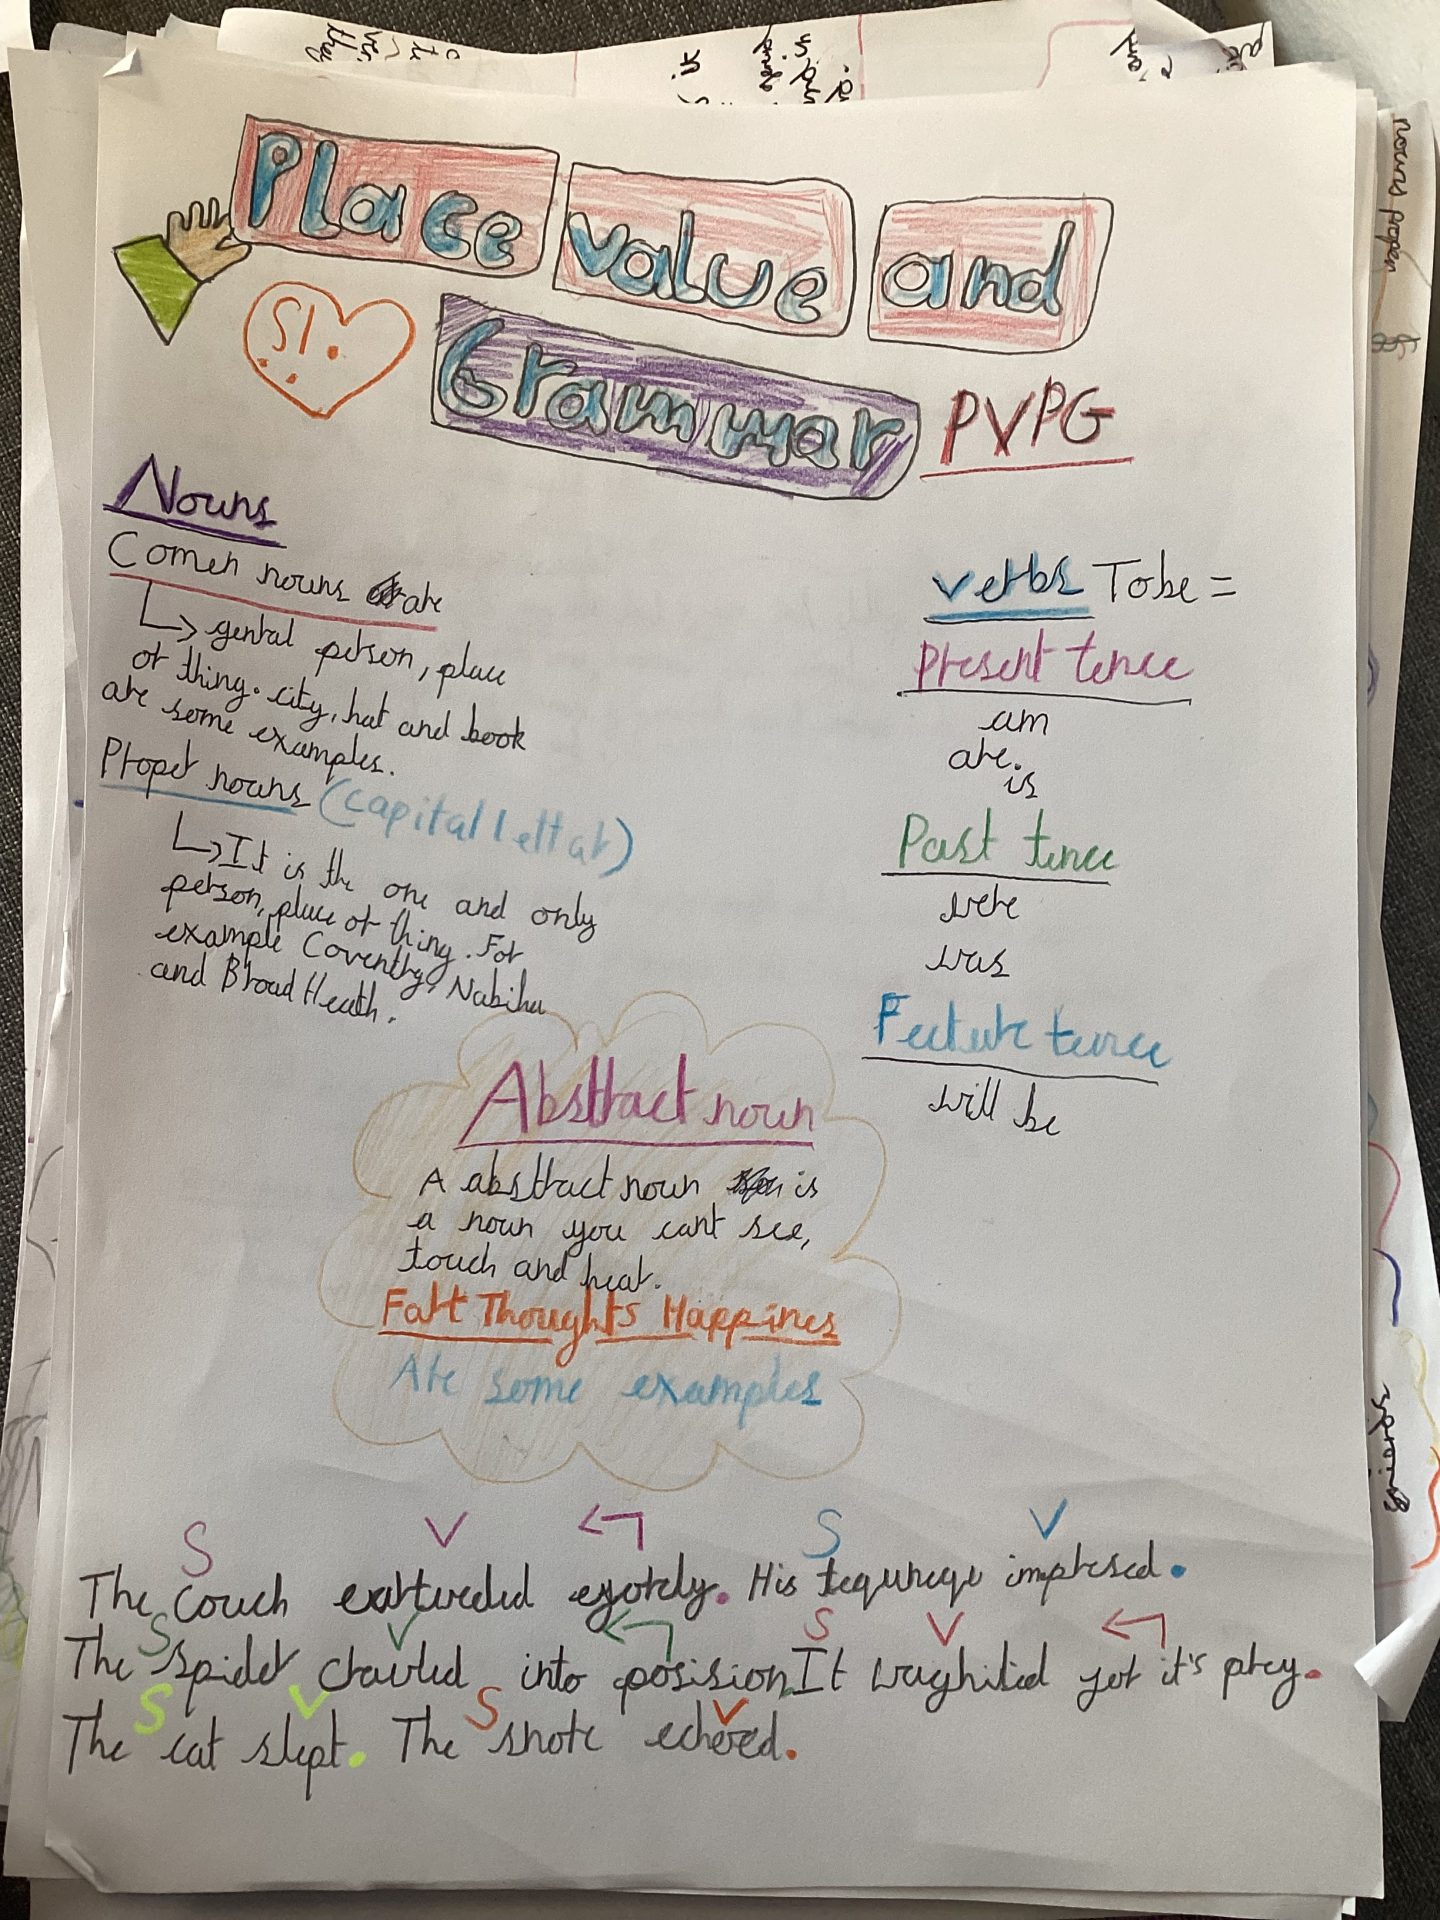 Place value and
Grammar
PVPG
S1.
Nouns
Comen nouns are
genral person, place
or thing. city, hat and book
are some examples.
Proper nouns (capital lettar)
It is the one and only
person, place or thing. For
example Coventry, Nabiha
and Broad Heath.
verbs To be =
Present tence
am
are.
is
Past tence
were
was
Feuture tence
will be
Abstract noun
A abstract noun is
a noun you cant see,
touch and hear.
Fart Thoughts Happines
Are some examples
S V S V
The couch His impresed.
S V S V
The spider crawled into posision. It yor it's prey.
S V S V
The cat slept. The snore echered.
nouns proper